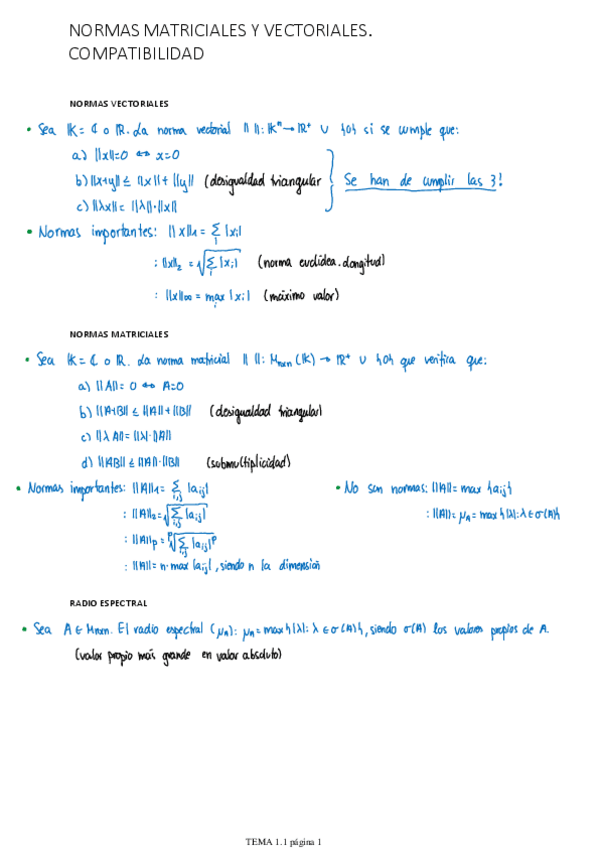 NORMAS MATRICIALES Y VECTORIALES.
COMPATIBILIDAD
NORMAS VECTORIALES
• Sea K = ℂ o ℝ. La norma vectorial || ||: Kⁿ → ℝ⁺ ∪ {0} si se cumple que:
a) ||x||=0 ⇔ x=0
b) ||x+y|| ≤ ||x|| + ||y|| (desigualdad triangular
c) ||λx|| = ||λ||·||x||
Se han de cumplir las 3!
• Normas importantes: ||x||₁ = Σᵢ |xᵢ|
: ||x||₂ = √(Σᵢ |xᵢ|) (norma euclídea. Longitud)
: ||x||∞ = maxᵢ |xᵢ| (máximo valor)
NORMAS MATRICIALES
• Sea K = ℂ o ℝ. La norma matricial || ||: Mₙₓₙ (K) → ℝ⁺ ∪ {0} que verifica que:
a) ||A|| = 0 ⇔ A=0
b) ||A+B|| ≤ ||A|| + ||B|| (desigualdad triangular)
c) ||λA|| = ||λ|·||A||
d) ||AB|| ≤ ||A||·||B|| (submultiplicidad)
• Normas importantes: ||A||₁ = Σᵢ,ⱼ |aᵢⱼ|
: ||A||₂ = √(Σᵢ,ⱼ |aᵢⱼ|)
: ||A||p = ᵖ√(Σᵢ,ⱼ |aᵢⱼ|ᵖ)
: ||A|| = n·max |aᵢⱼ|, siendo n la dimensión
• No son normas: ||A|| = max {aᵢⱼ}
: ||A|| = μA = max{|λ|: λ ∈ σ(A)}
RADIO ESPECTRAL
• Sea A ∈ Mₙₓₙ. El radio espectral (μA): μA = max{|λ|: λ ∈ σ(A)}, siendo σ(A) los valores propios de A.
(valor propio más grande en valor absoluto)
TEMA 1.1 página 1